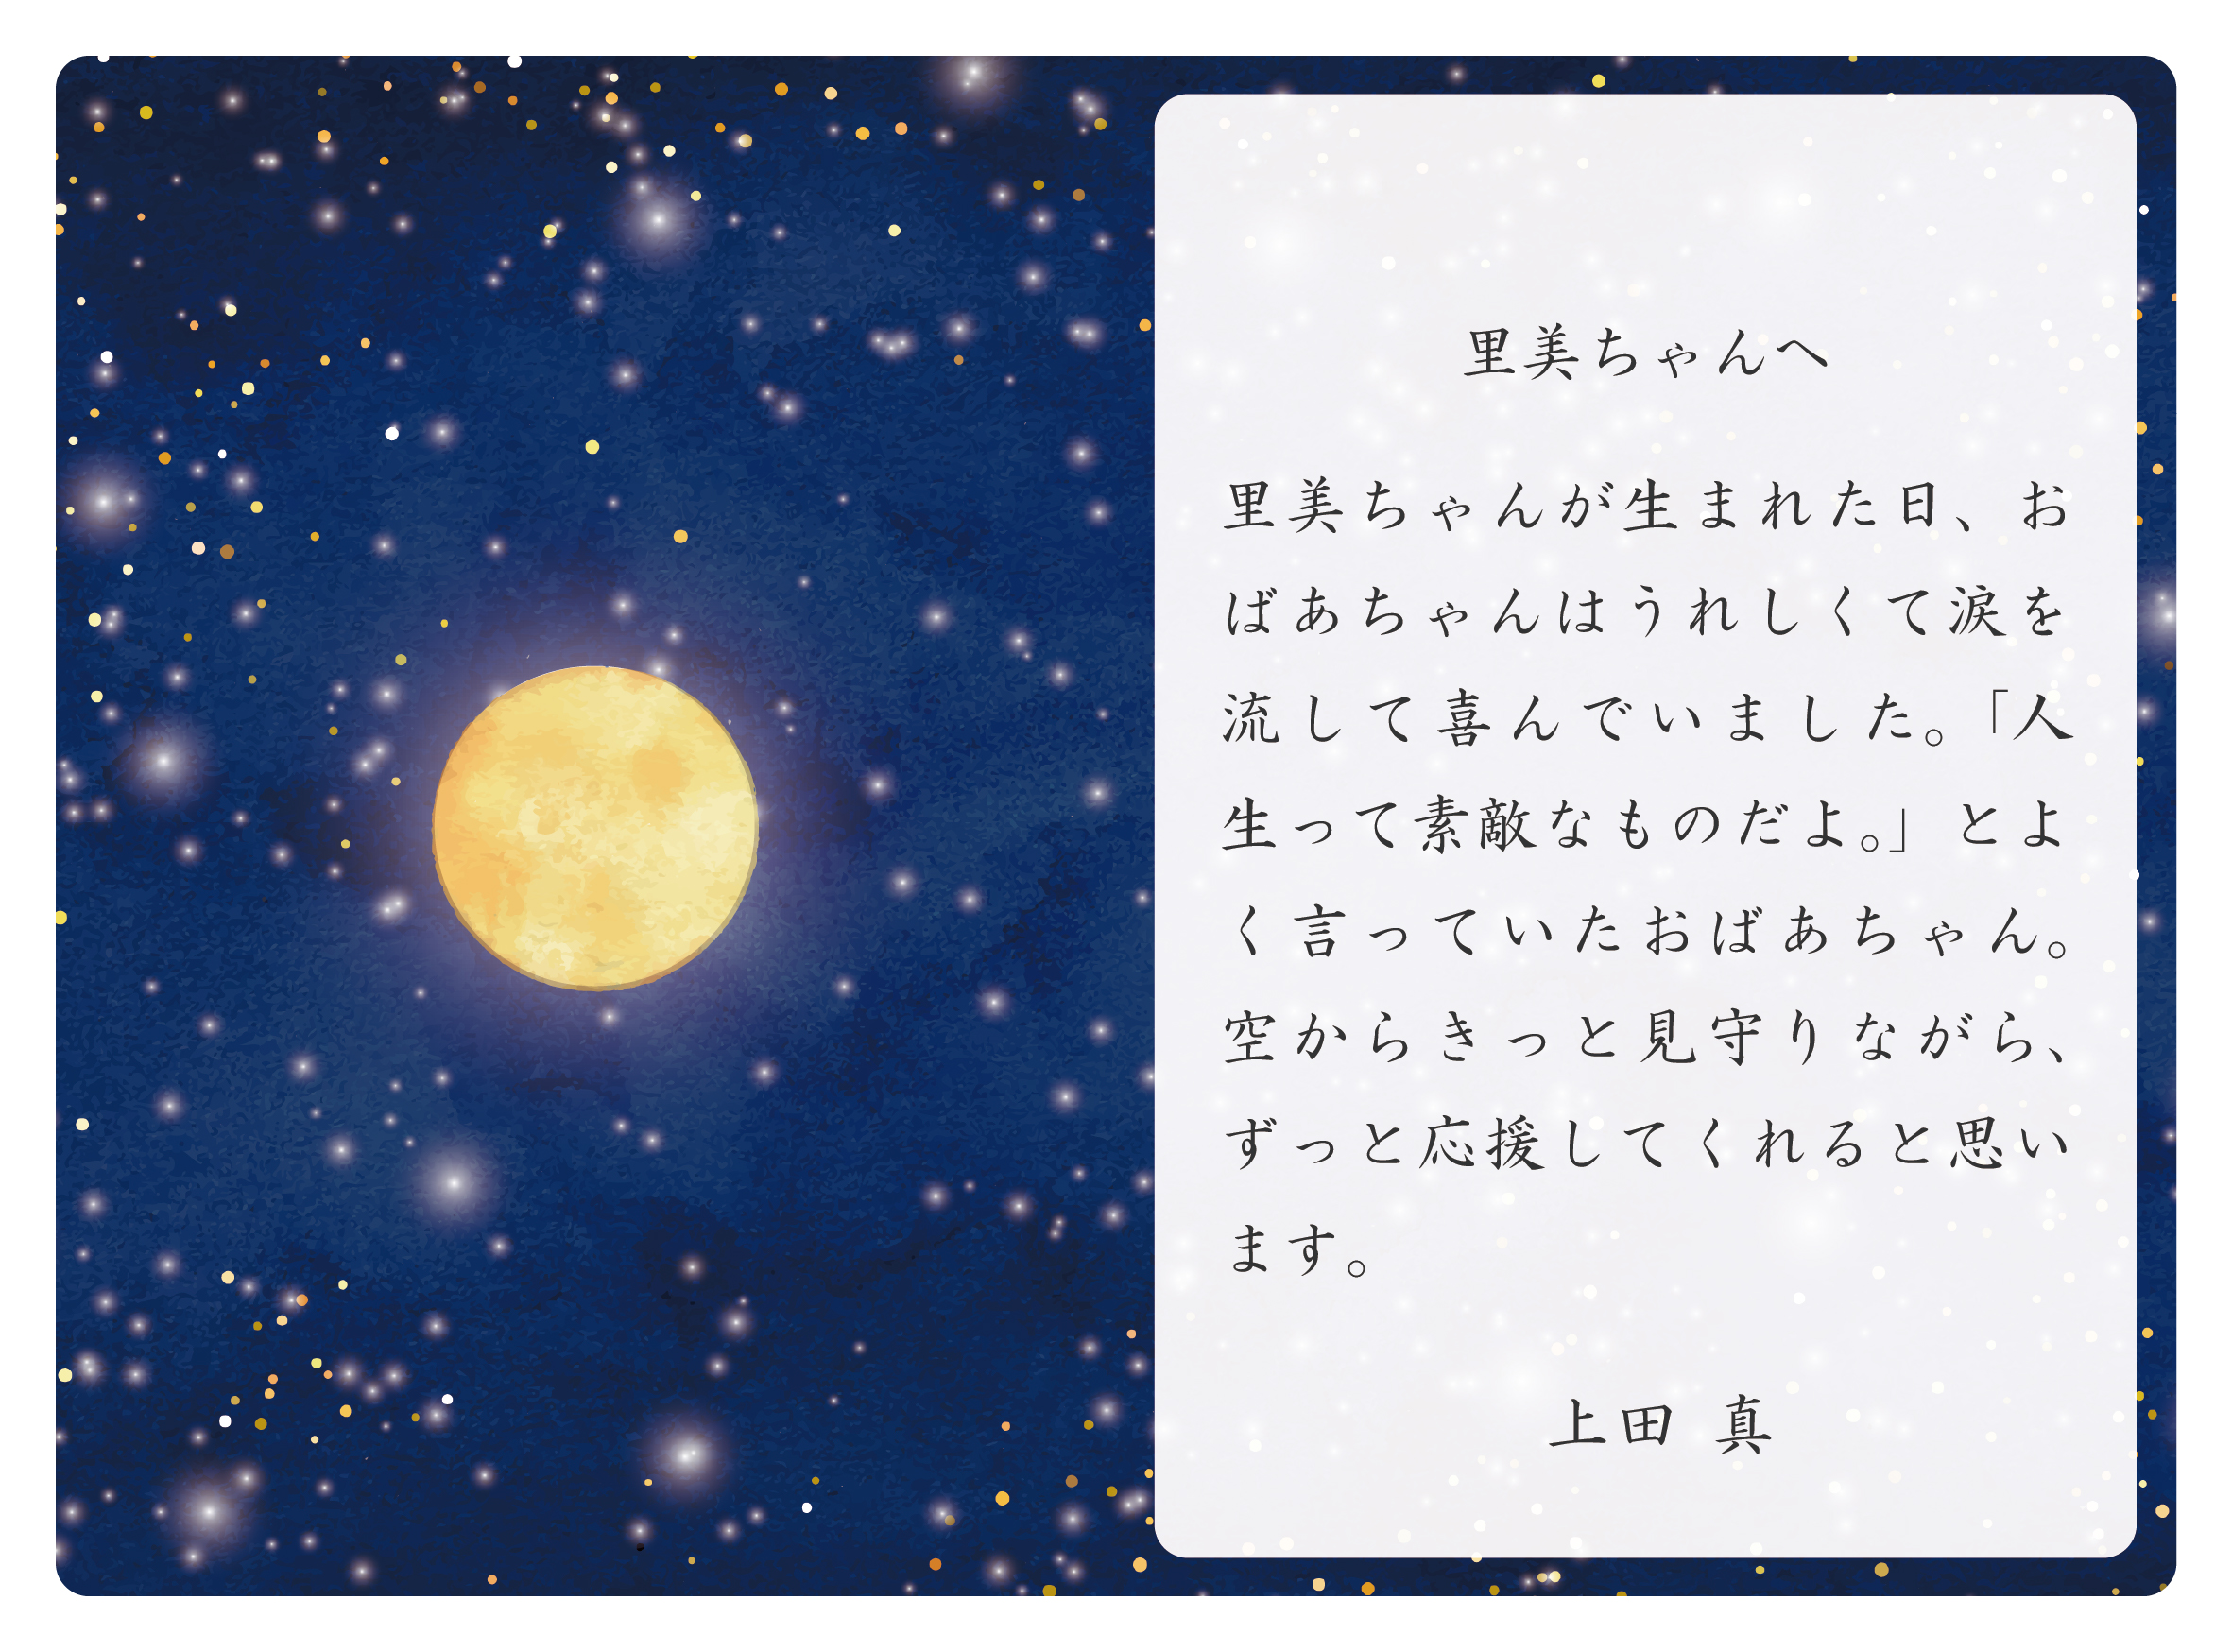 里美ちゃんへ
里美ちゃんが生まれた日、お
ばあちゃんはうれしくて涙を
流して喜んでいました。「人
生って素敵なものだよ。」とよ
く言っていたおばあちゃん。
空からきっと見守りながら、
ずっと応援してくれると思い
ます。
上田 真